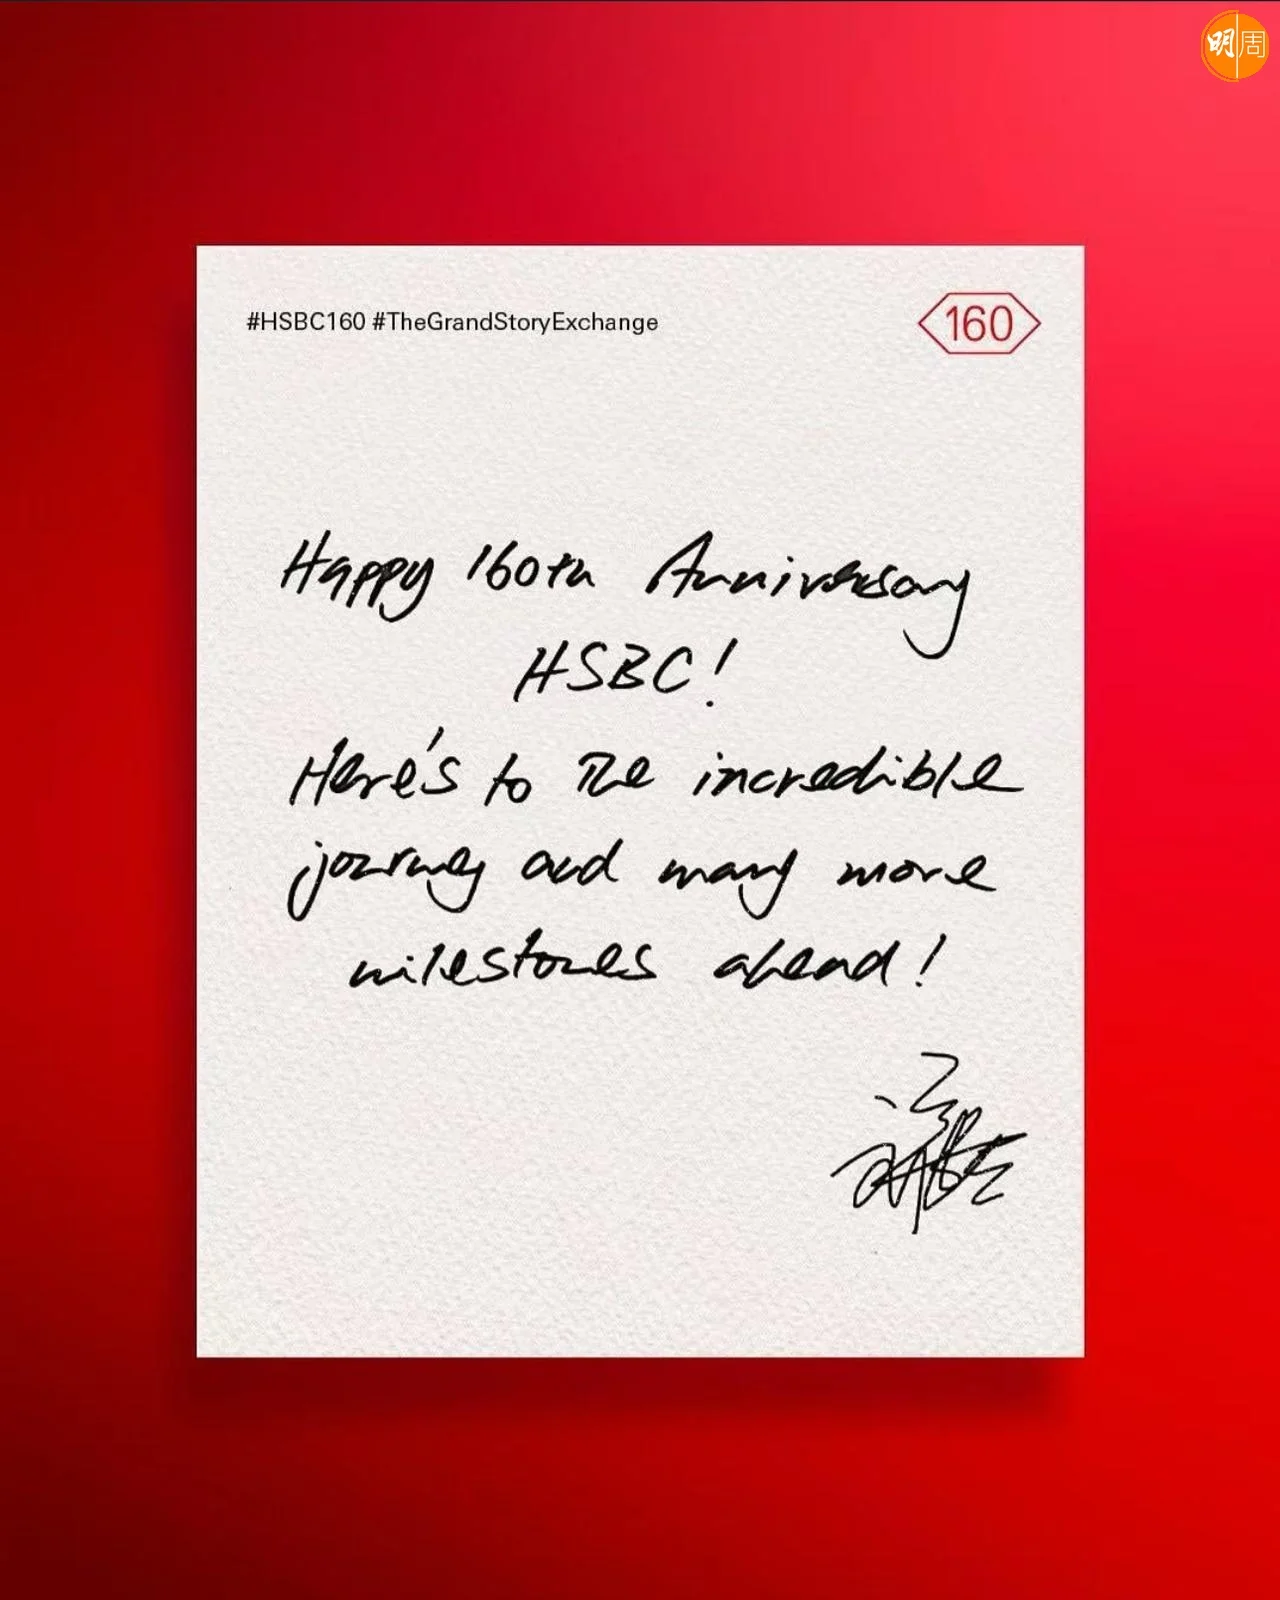 明周
#HSBC160 #TheGrandStoryExchange
160
Happy 160th Anniversary
HSBC!
Here's to the incredible
journey and many more
milestones ahead!